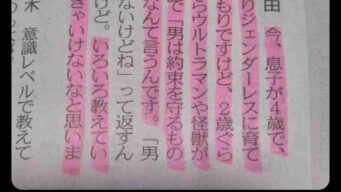 田 今、息子が4歳で、
りジェンダーレスに育て
もりですけど、2歳ぐら
らウルトラマンや怪獣が
で「男は約束を守るもの
なんて言うんです。「男
ないけどね」って返すん
けど。いろいろ教えてい
きゃいけないなと思いま
木 意識レベルで教えて